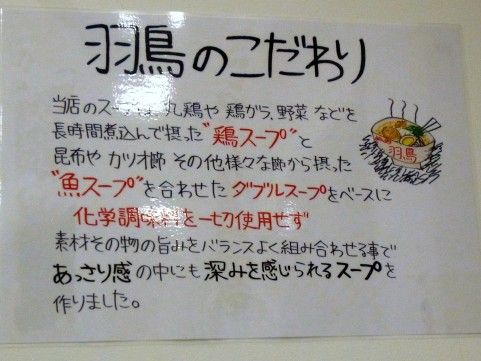 羽鳥のこだわり
当店のスープは、丸鶏や 鶏がら、野菜 などを
長時間煮込んで摂った"鶏スープ"と
昆布や カツオ節 その他様々な節から摂った
"魚スープ"を合わせた ダブルスープをベースに
化学調味料を一切使用せず
素材その物の旨みをバランスよく組み合わせる事で
あっさり感 の中にも 深みを感じられるスープを
作りました。
羽鳥